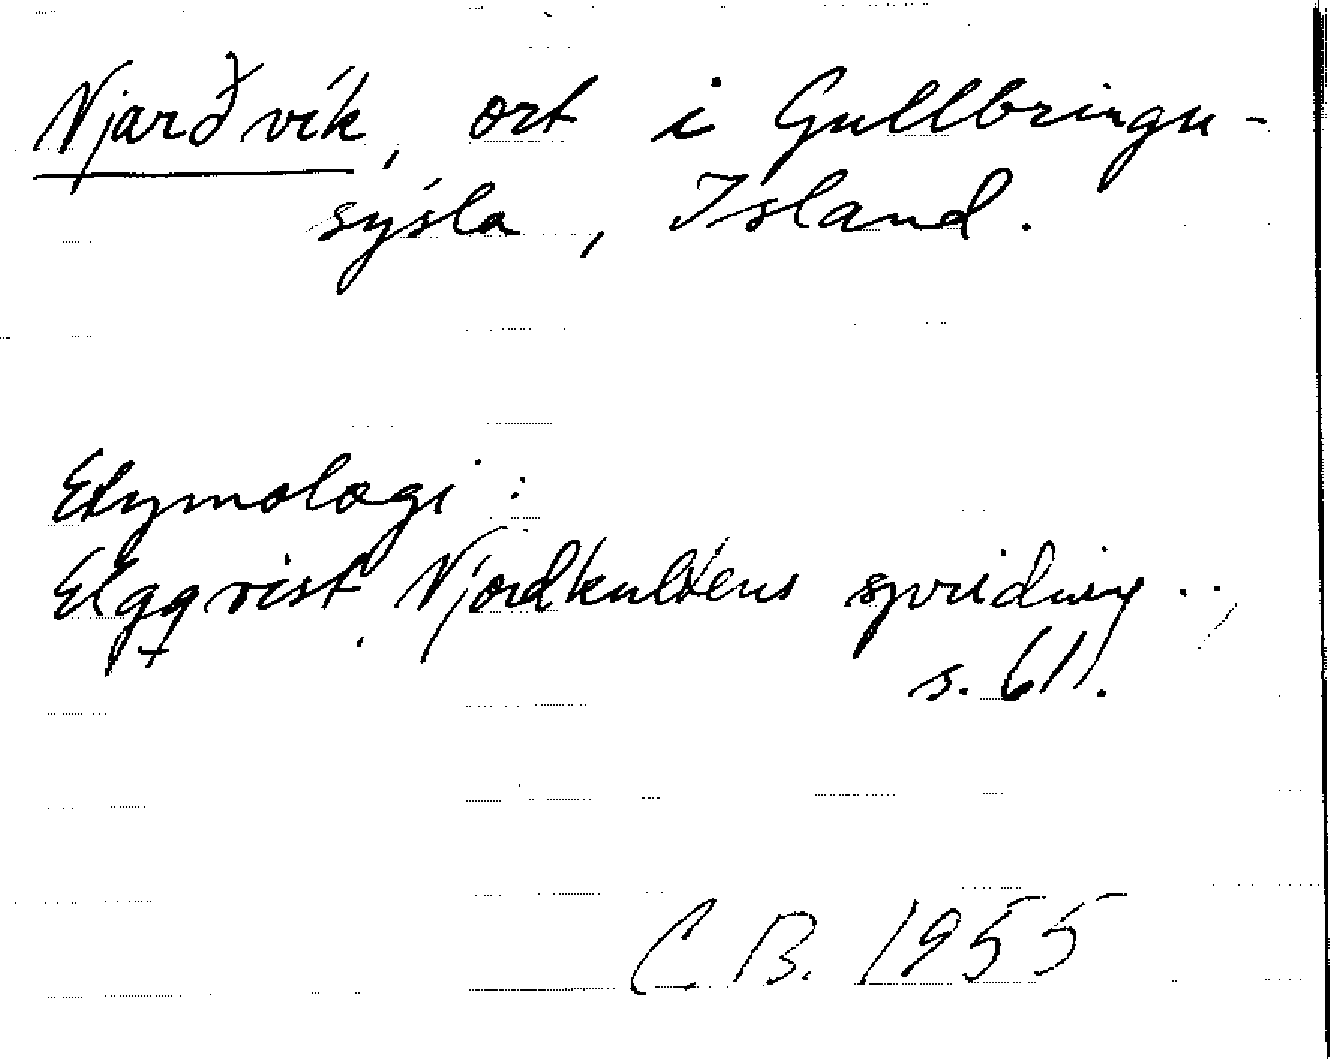 Njarðvík, ort i Gullbringu-
sýsla, Island.
Etymologi:
Elgqvist, Njordkultens spridning ..,
s. 61.
C B. 1955